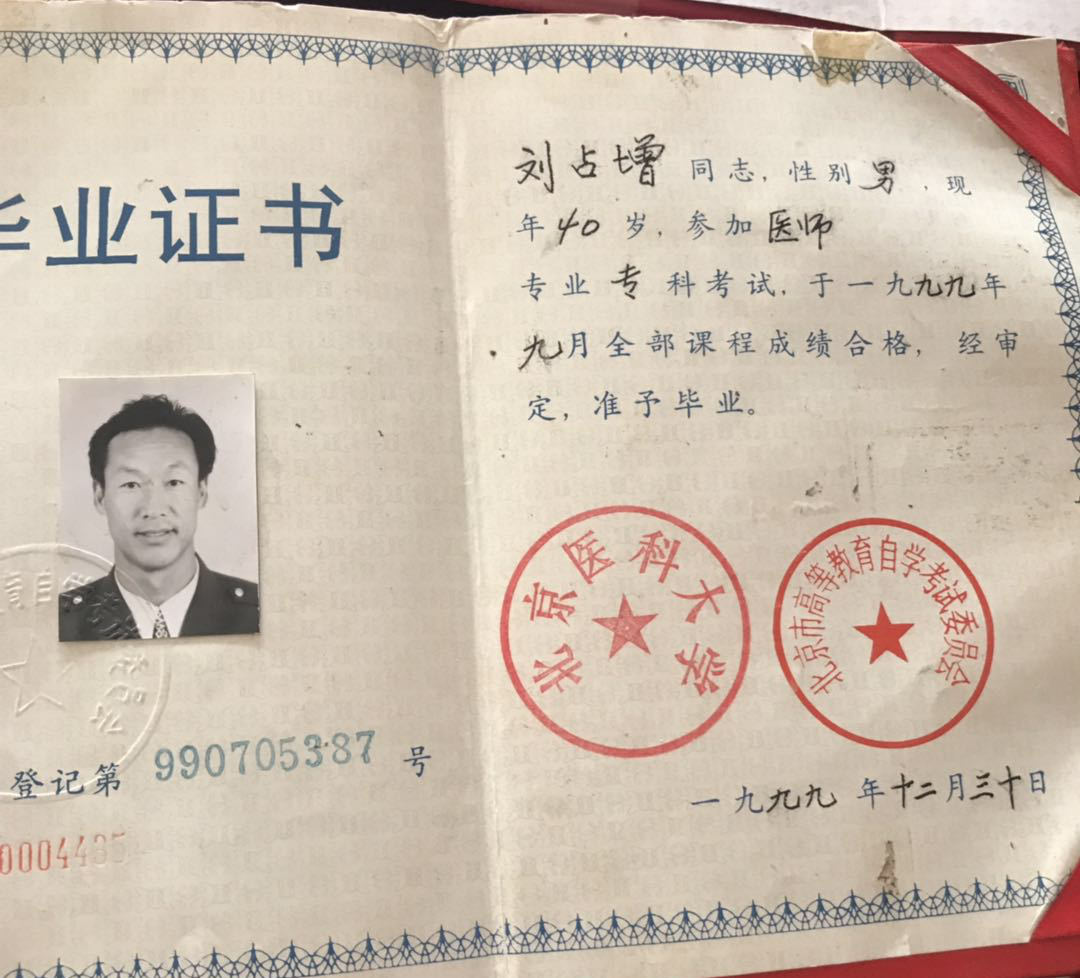 毕业证书
登记第 990705387 号
刘占增 同志，性别 男，现
年 40 岁，参加 医师
专业 专 科考试，于一九九九年
九月全部课程成绩合格，经审
定，准予毕业。
北京医科大学
北京市高等教育自学考试委员会
一九九九 年十二月三十日